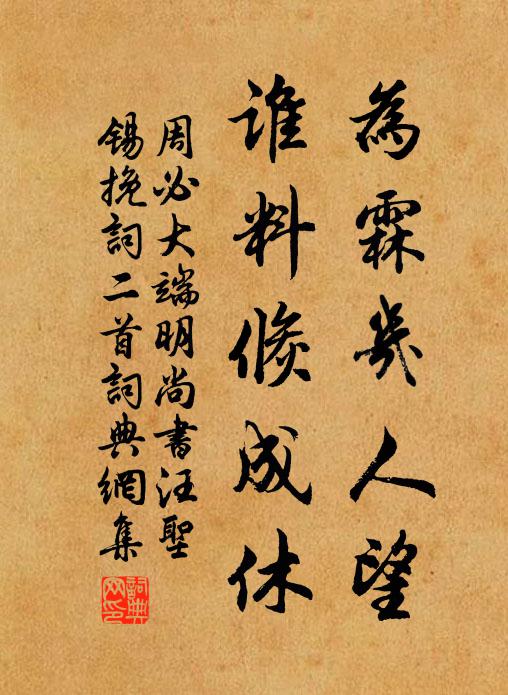 為霖幾人望
誰料倐成休
周必大端明尚書汪聖
錫挽詞二首詞典網集
詞典网印